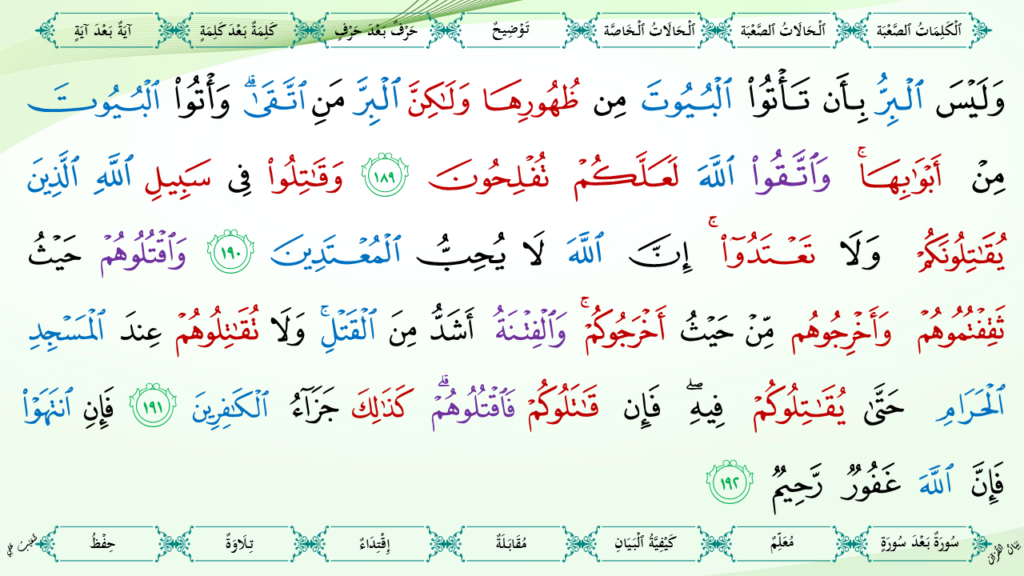 اَلْكَلِمَاتُ الصَّعْبَة اَلْحَالَاتُ الصَّعْبَة اَلْحَالَاتُ الْخَاصَّة تَوْضِيحٌ حَرْفٌ بَعْدَ حَرْفٍ كَلِمَةٌ بَعْدَ كَلِمَةٍ آيَةٌ بَعْدَ آيَةٍ
وَلَيْسَ ٱلْبِرُّ بِأَن تَأْتُوا۟ ٱلْبُيُوتَ مِن ظُهُورِهَا وَلَـٰكِنَّ ٱلْبِرَّ مَنِ ٱتَّقَىٰ ۗ وَأْتُوا۟ ٱلْبُيُوتَ
مِنْ أَبْوَٰبِهَا ۚ وَٱتَّقُوا۟ ٱللَّهَ لَعَلَّكُمْ تُفْلِحُونَ ١٨٩ وَقَـٰتِلُوا۟ فِى سَبِيلِ ٱللَّهِ ٱلَّذِينَ
يُقَـٰتِلُونَكُمْ وَلَا تَعْتَدُوٓا۟ ۚ إِنَّ ٱللَّهَ لَا يُحِبُّ ٱلْمُعْتَدِينَ ١٩٠ وَٱقْتُلُوهُمْ حَيْثُ
ثَقِفْتُمُوهُمْ وَأَخْرِجُوهُم مِّنْ حَيْثُ أَخْرَجُوكُمْ ۚ وَٱلْفِتْنَةُ أَشَدُّ مِنَ ٱلْقَتْلِ ۚ وَلَا تُقَـٰتِلُوهُمْ عِندَ ٱلْمَسْجِدِ
ٱلْحَرَامِ حَتَّىٰ يُقَـٰتِلُوكُمْ فِيهِ ۖ فَإِن قَـٰتَلُوكُمْ فَٱقْتُلُوهُمْ ۗ كَذَٰلِكَ جَزَآءُ ٱلْكَـٰفِرِينَ ١٩١ فَإِنِ ٱنتَهَوْا۟
فَإِنَّ ٱللَّهَ غَفُورٌ رَّحِيمٌ ١٩٢
سُورَةٌ بَعْدَ سُورَةٍ مُعَلِّمٌ كَيْفِيَّةُ الْبَيَانِ مُقَابَلَةٌ إِقْتِدَاءٌ تِلَاوَةٌ حِفْظٌ
بَيَانُ القُرآن